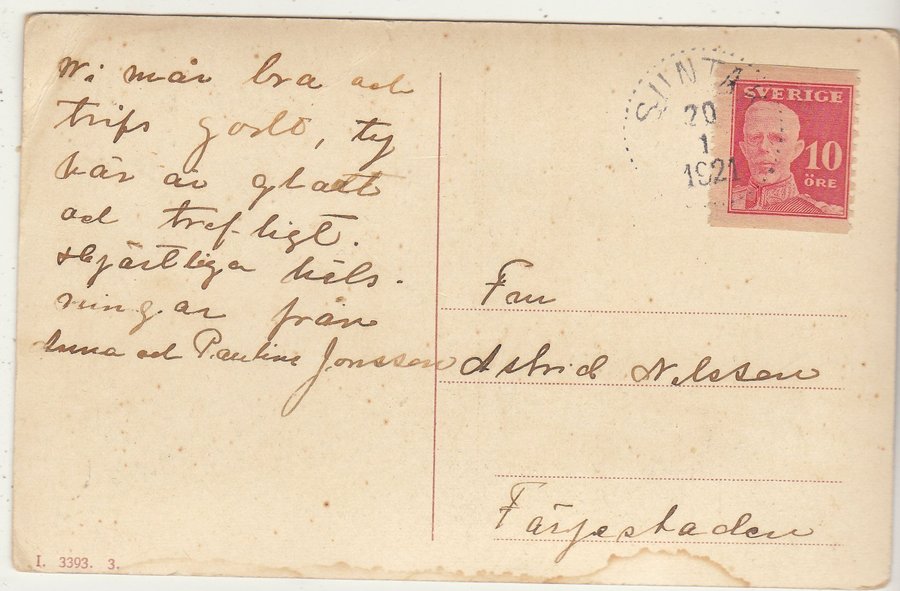 Vi mår bra och
trifs godt, ty
här är gladt
och trefligt.
Hjärtliga häls-
ningar från
Anna och Pauline Jonsson
SVERIGE
10
ÖRE
20
1
1921
Fru
Astrid Nilsson
Färjestaden
I. 3393. 3.